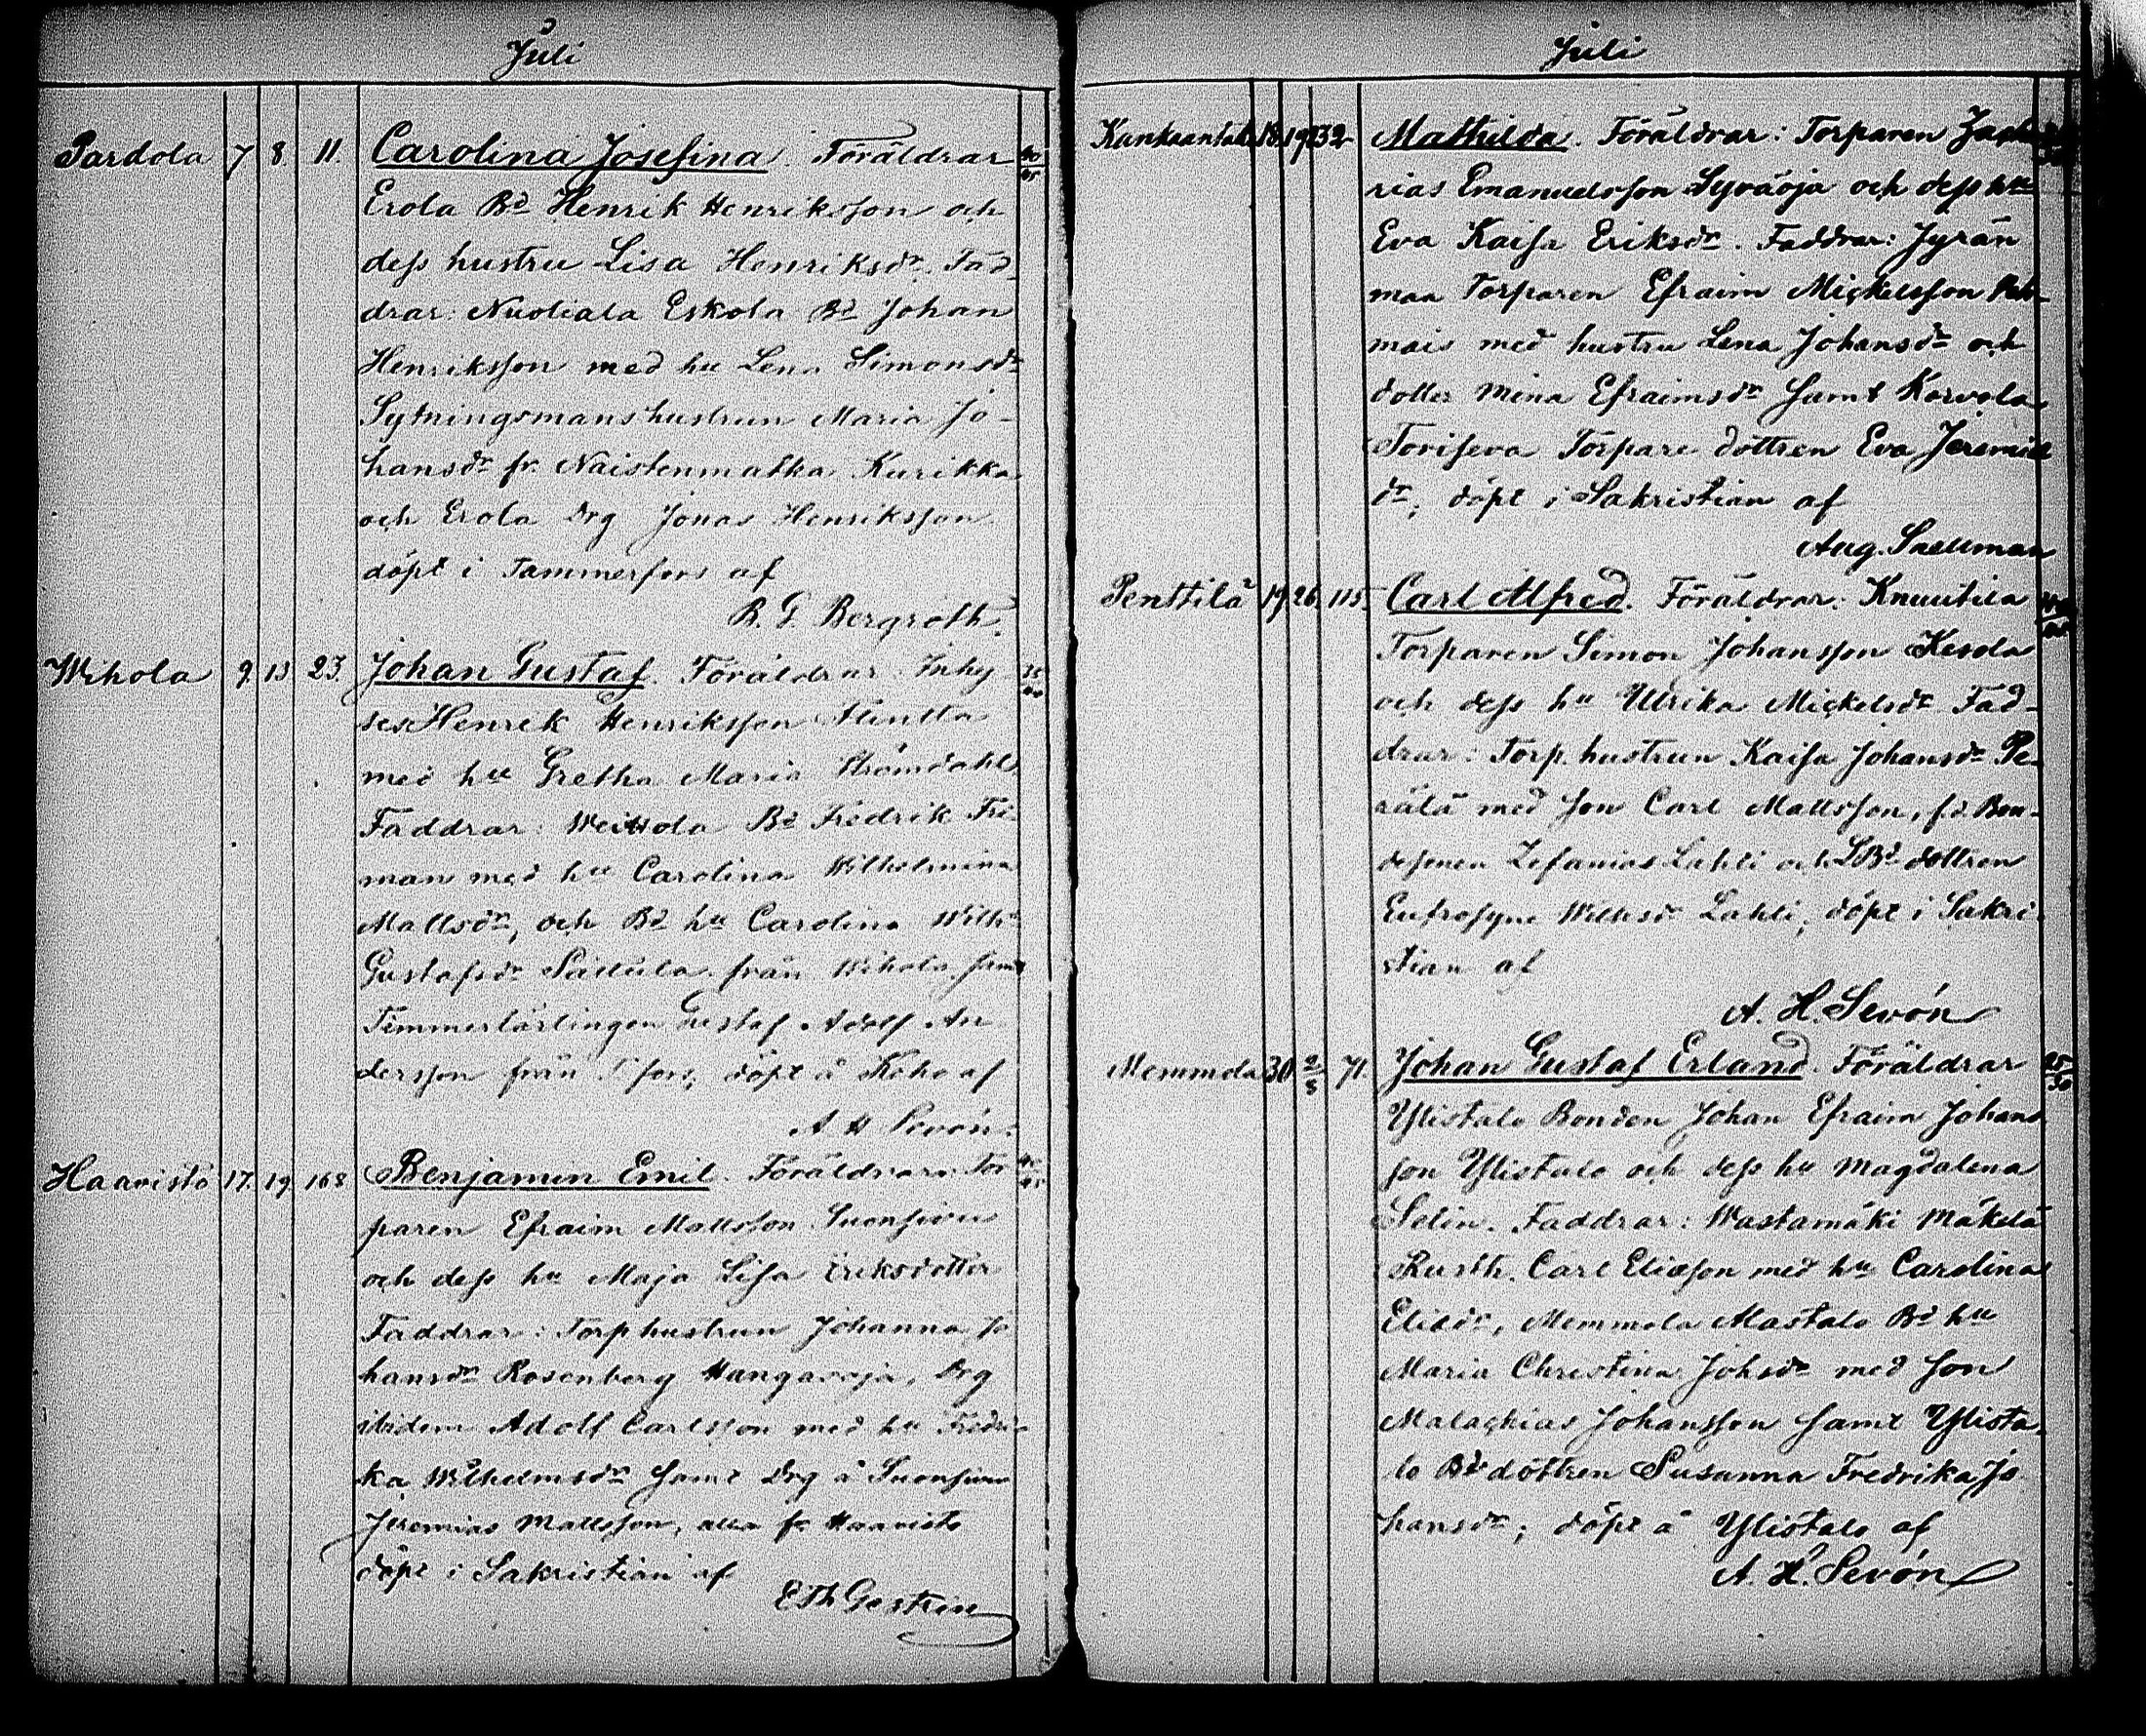 Juli
Pardola 7 8. 11. Carolina Josefina. Föräldrar 40/45
Erola Bd Henrik Henriksson och
dess hustru Lisa Henriksdr. Fad-
drar: Nuoliala Eskola Bd Johan
Henriksson med hu Lena Simonsdr
Sytningsmanshustrun Maria Jo-
hansdr fr. Naistenmatka Kurikka
och Erola Drg Jonas Henriksson
döpt i Tammerfors af
B. G. Bergroth.
Wihola 9. 13 23. Johan Gustaf. Föräldrar Inhy
ses Henrik Henriksson
med hu Gretha Maria Strömdahl.
Faddrar: Bd Fredrik Fri-
man med hu Carolina Wilhelmina
Mattsdr, och Bd hu Carolina Wilh:
Gustafsdr från Wihola, samt
Timmerlärlingen Gustaf Adolf An
dersson från T.fors; döpt å Koho af
A H Sevón.
Haavisto 17. 19 168 Benjamin Emil. Föräldrar: Tor
paren Efraim Mattsson Suonsivu
och dess hu Maja Lisa Eriksdotter
Faddrar: Torphustrun Johanna Jo
hansdr Rosenberg Hangasoja, Drg
ibidem Adolf Carlsson med hu Fredri-
ka Wilhelmsdr samt Drg å Suonsivu
Jeremias Mattsson, alla fr Haavisto
döpt i Sakristian af
E Th Gestrin
Juli
Kankaantaka 18. 19 132 Mathilda. Föräldrar: Torparen Zacha
rias Emanuelsson Syväoja och dess hu
Eva Kaisa Eriksdr. Faddrar: Jyrän
maa Torparen Efraim Mickelsson
mais med hustru Lena Johansdr och
dotter Mina Efraimsdr samt Korvola
Toriseva Torpare dottren Eva Jeremie
dr; döpt i Sakristian af
Aug. Snellman
Penttilä 19. 26. 115. Carl Alfred. Föräldrar: Knuutila
Torparen Simon Johansson Kesola
och dess hu Ulrika Mickelsdr Fad-
drar: Torp. hustrun Kaisa Johansdr Pe-
rälä med son Carl Mattsson, fd. Bon-
desonen Zefanias Lahti och Bd dottren
Eufrosyne Willhsdr Lahti; döpt i Sakri
stian af
A. H. Sevón
Memmola 30. 2/8 71. Johan Gustaf Erland. Föräldrar 25/30
Ylistalo Bonden Johan Efraim Johans
son Ylistalo och dess hu Magdalena
Selin. Faddrar: Wastamäki Mäkelä
Rusth. Carl Eliasson med hu Carolina
Eliedr, Memmola Mastalo Bd hu
Maria Christina Johsdr med son
Malachias Johansson samt Ylista
lo Bd dottren Susanna Fredrika Jo
hansdr; döpt å Ylistalo af
A. H. Sevón